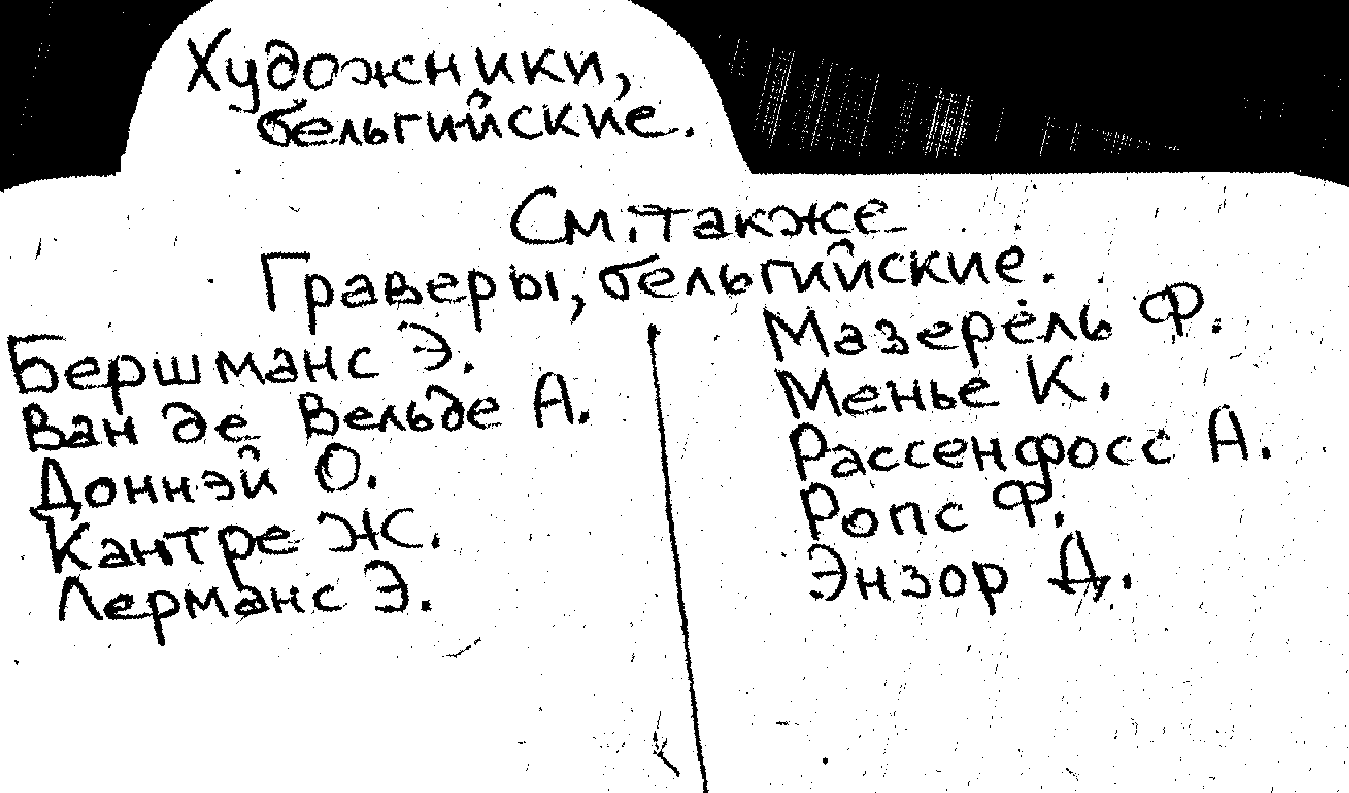 Художники,
бельгийские.
См. также
Граверы, бельгийские.
Бершманс Э.
Ван де Вельде А.
Доннэй О.
Кантре Ж.
Лерманс Э.
Мазерель Ф.
Менье К.
Рассенфосс А.
Ропс Ф.
Энзор Д.